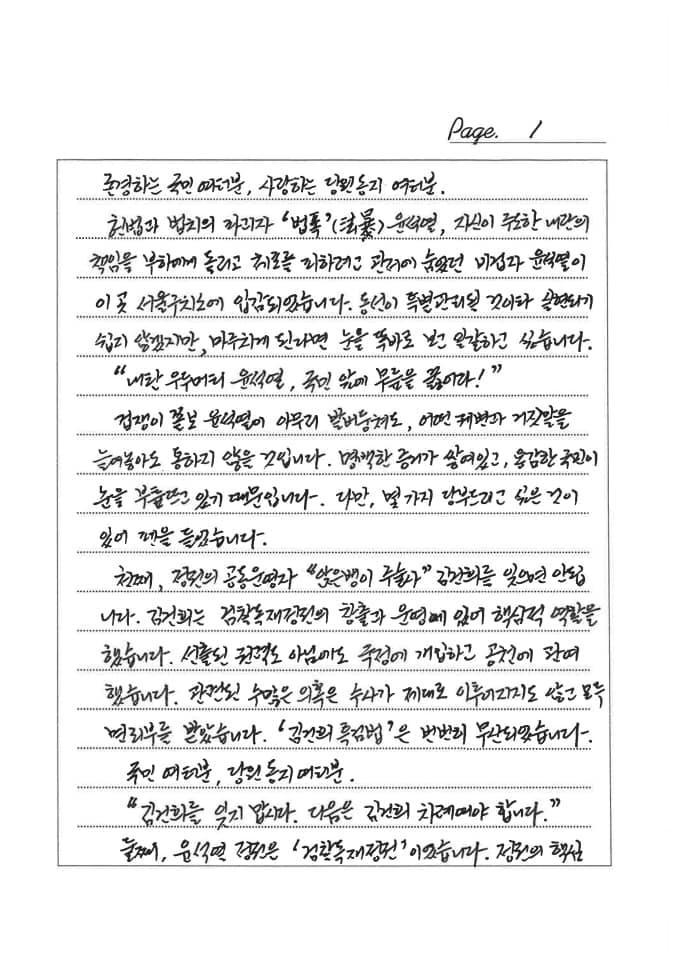 Page. 1
존경하는 국민 여러분, 사랑하는 당원동지 여러분.
헌법과 법치의 파괴자 '법폭'(法暴) 윤석열, 자신이 주도한 내란의
책임을 부하에게 돌리고 체포를 피하려고 관저에 숨었던 비겁자 윤석열이
이 곳 서울구치소에 입감되었습니다. 동선이 특별관리될 것이라 실현되기
쉽지 않겠지만, 마주치게 된다면 눈을 똑바로 보고 일갈하고 싶습니다.
"내란 우두머리 윤석열, 국민 앞에 무릎을 꿇어라!"
겁쟁이 쫄보 윤석열이 아무리 발버둥쳐도, 어떤 궤변과 거짓말을
늘어놓아도 통하지 않을 것입니다. 명백한 증거가 쌓여있고, 용감한 국민이
눈을 부릅뜨고 있기 때문입니다. 다만, 몇 가지 당부드리고 싶은 것이
있어 펜을 들었습니다.
첫째, 정권의 공동운영자 "앉은뱅이 주술사" 김건희를 잊으면 안됩
니다. 김건희는 검찰독재정권의 창출과 운영에 있어 핵심적 역할을
했습니다. 선출된 권력도 아님에도 국정에 개입하고 공천에 관여
했습니다. 관련된 수많은 의혹은 수사가 제대로 이루어지지도 않고 모두
면죄부를 받았습니다. '김건희 특검법'은 번번히 무산되었습니다.
국민 여러분, 당원 동지 여러분.
"김건희를 잊지 맙시다. 다음은 김건희 차례여야 합니다."
둘째, 윤석열 정권은 '검찰독재정권'이었습니다. 정권의 핵심